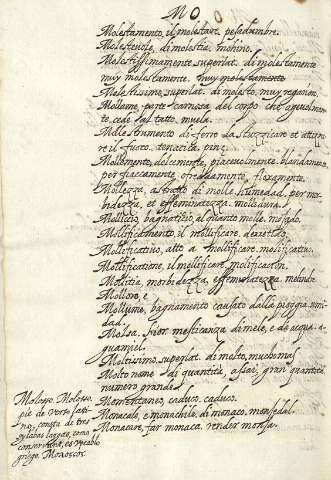 MO
Molestamento, il molestare. pesadumbre.
Molesteuole, di molestia. mohino.
Molestissimamente superlat. di molestamente
muy molestamente. muy molestamente
Molestissimo superlat. di molesto, muy
Mollame, parte carnosa del corpo che ageuolmen-
te, cede al tatto, muela.
Molle strumento di ferro da stuzzicare et attizza-
re il fuoco. tenacita, pinç.
Mollemente, dolcemente, piaceuolmente. blandamen.
per fiaccamente, freddamente, floxamente.
Mollezza, astratto di molle, humedad, per mor-
bidezza, et effeminatezza. molladura.
Molliccio, bagnaticcio, alquanto molle. mojado.
Mollificamento, il mollificare.
Mollificatiuo, atto a mollificare. molificatiuo.
Mollificatione, il mollificare, molificacion.
Molitia, morbidezza, effeminatezza.
Mollore, e
Mollume, bagnamento causato dalla pioggia. umi-
dad.
Molsa. fior. mesticanza di mele, e de acqua. a-
guamiel.
Moltissimo, superlat. di molto, mucho mas
Molto nome di quantità, assai, gran quantità
numero grande.
Momentaneo, caduco. caduco.
Monacale, e monachile. di monaco,
Monacare, far monaca. render monja.
Molosso. Molosso,
pie de verso lati-
no, consta de tres
sylabas largas, como
es vocablo
griego.